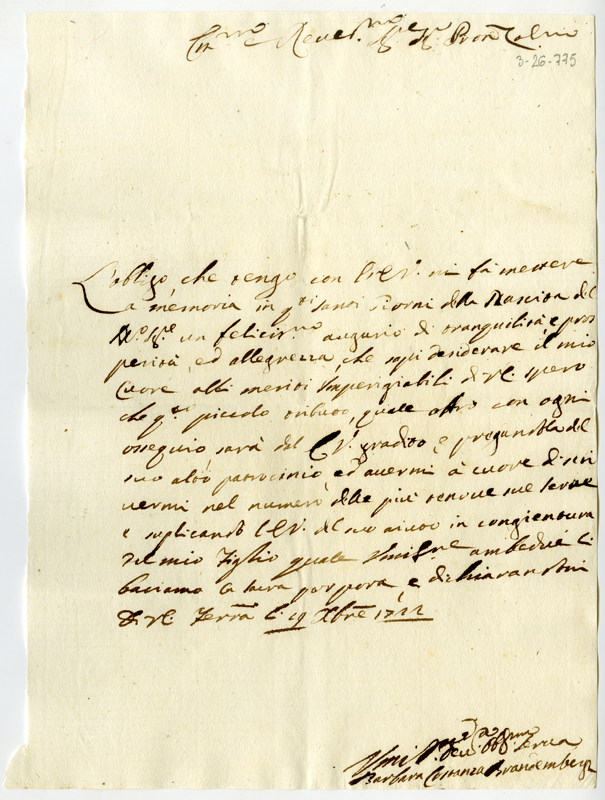 Em.mo Reve.mo Sig.r Pron Col.mo
3-26-775
L'obligo, che tengo con l'E.V. mi fà mettere
La memoria in q.ti santi Giorni della Nascita del
N.ro Sig.re un felicis.mo augurio di tranquilità e pros
perità, ed allegrezza, che sapi desiderare il mio
Cuore alli meriti Impregiabili di V.E. spero
che q.to piccolo tributo, quale offro con ogni
ossequio sarà dal E.V. gradito, e pregandola del
suo alto patrocinio ed avermi à cuore di scri
vermi nel numero delle più tenove sue serve
e suplicando l'E.V. del suo aiuto in congientura
del mio Figlio quale Umilm.te ambedue li
baciamo la sacra porpora, e dichiarandomi
D. V.E. Ferra li 19 Xbre 1722
Umi.ma Dev. Obb.ma Serva
Barbara Costanza Brandembergh